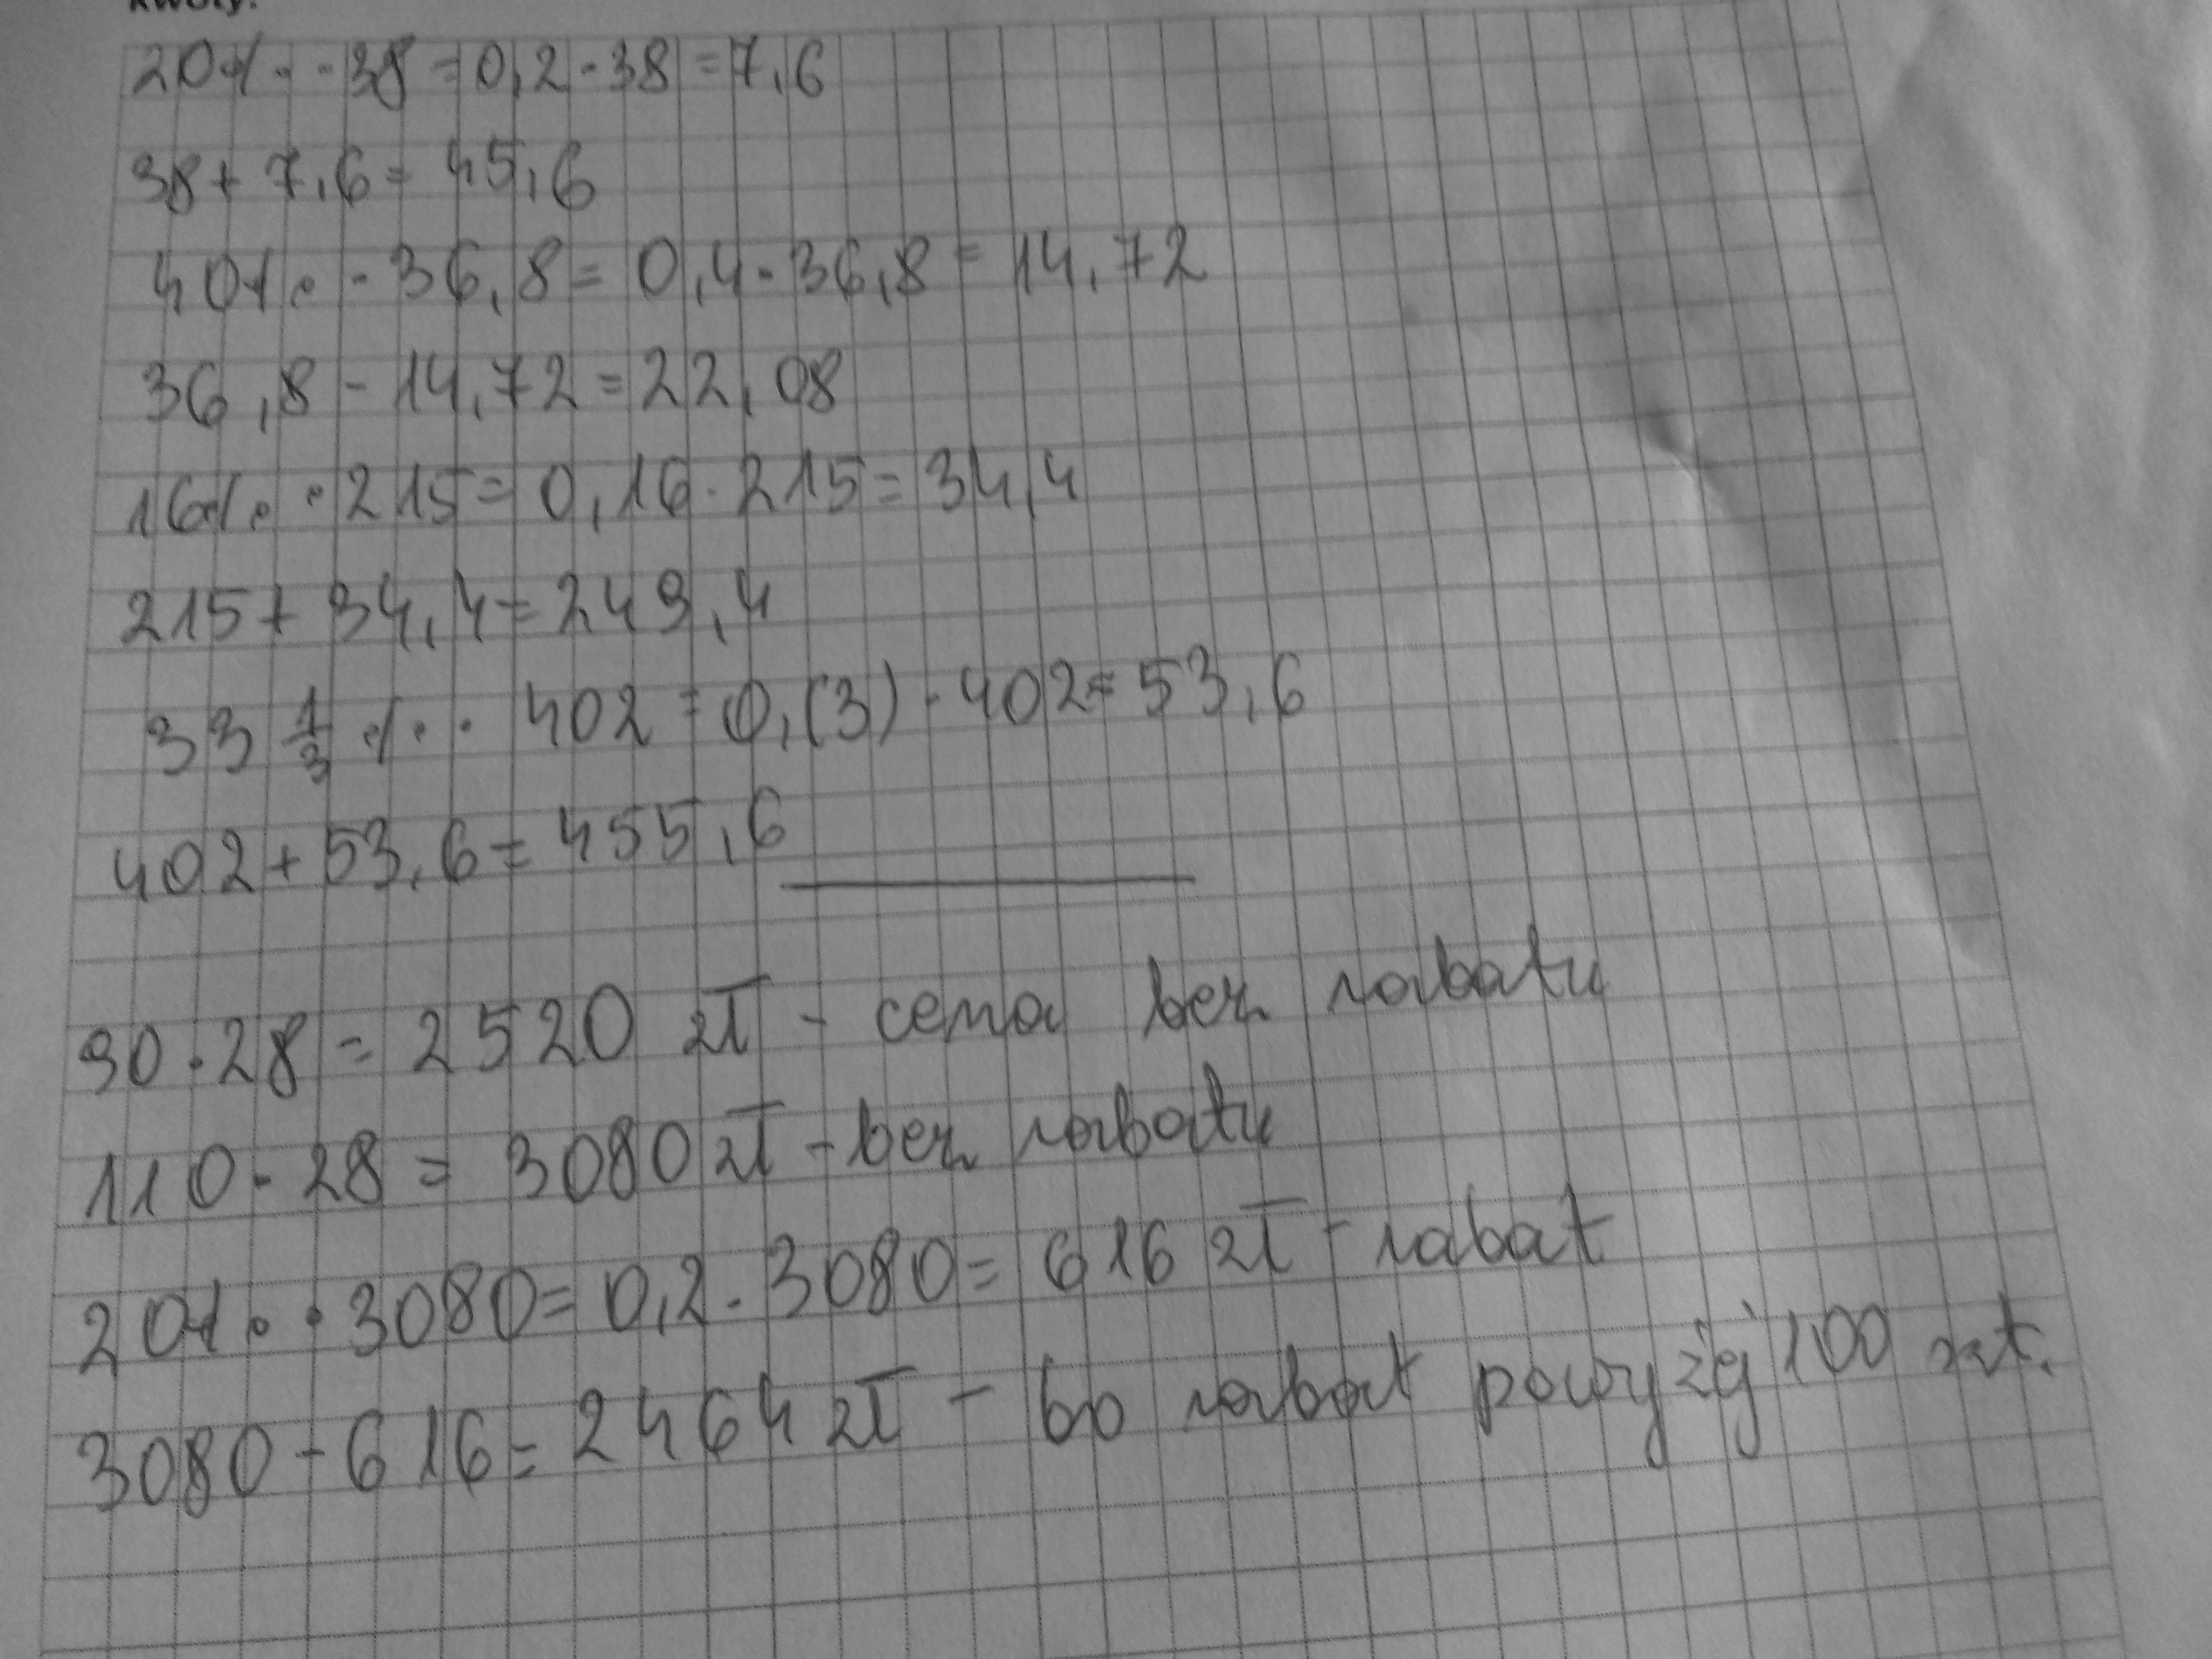 kwoty.
20% · 38 = 0,2 · 38 = 7,6
38 + 7,6 = 45,6
40% · 36,8 = 0,4 · 36,8 = 14,72
36,8 - 14,72 = 22,08
16% · 215 = 0,16 · 215 = 34,4
215 + 34,4 = 249,4
33 1/3 % · 402 = 0,(3) · 402 = 53,6
402 + 53,6 = 455,6
90 · 28 = 2520 zł - cena bez rabatu
110 · 28 = 3080 zł - bez rabatu
20% · 3080 = 0,2 · 3080 = 616 zł - rabat
3080 - 616 = 2464 zł - bo rabat powyżej 100 szt.